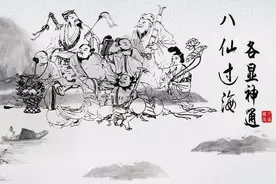 八仙过海
各显神通